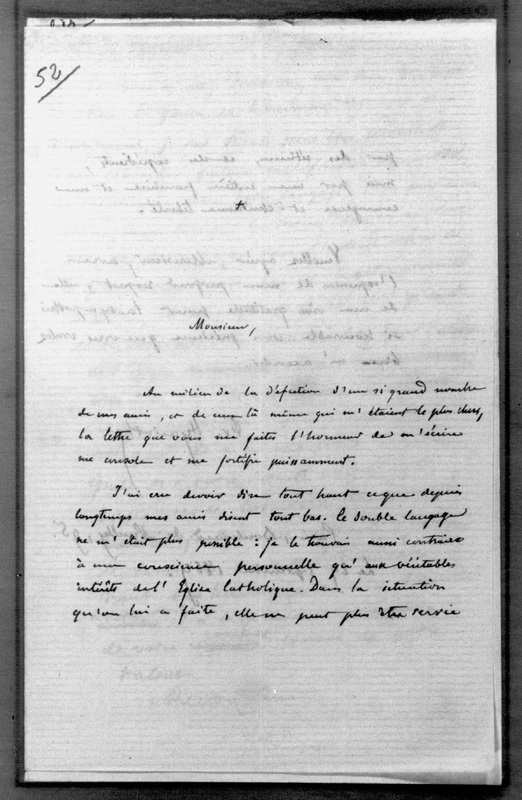 52
Monsieur,
Au milieu de la défection d'un si grand nombre
de mes amis, et de ceux là même qui m'étaient le plus chers,
la lettre que vous me faites l'honneur de m'écrire
me console et me fortifie puissamment.
J'ai cru devoir dire tout haut ce que depuis
longtemps mes amis disent tout bas. Ce double langage
ne m'était plus possible : je le trouvais aussi contraire
à ma conscience personnelle qu'aux véritables
intérêts de l'Eglise Catholique. Dans la situation
qu'on lui a faite, elle ne peut plus être servie